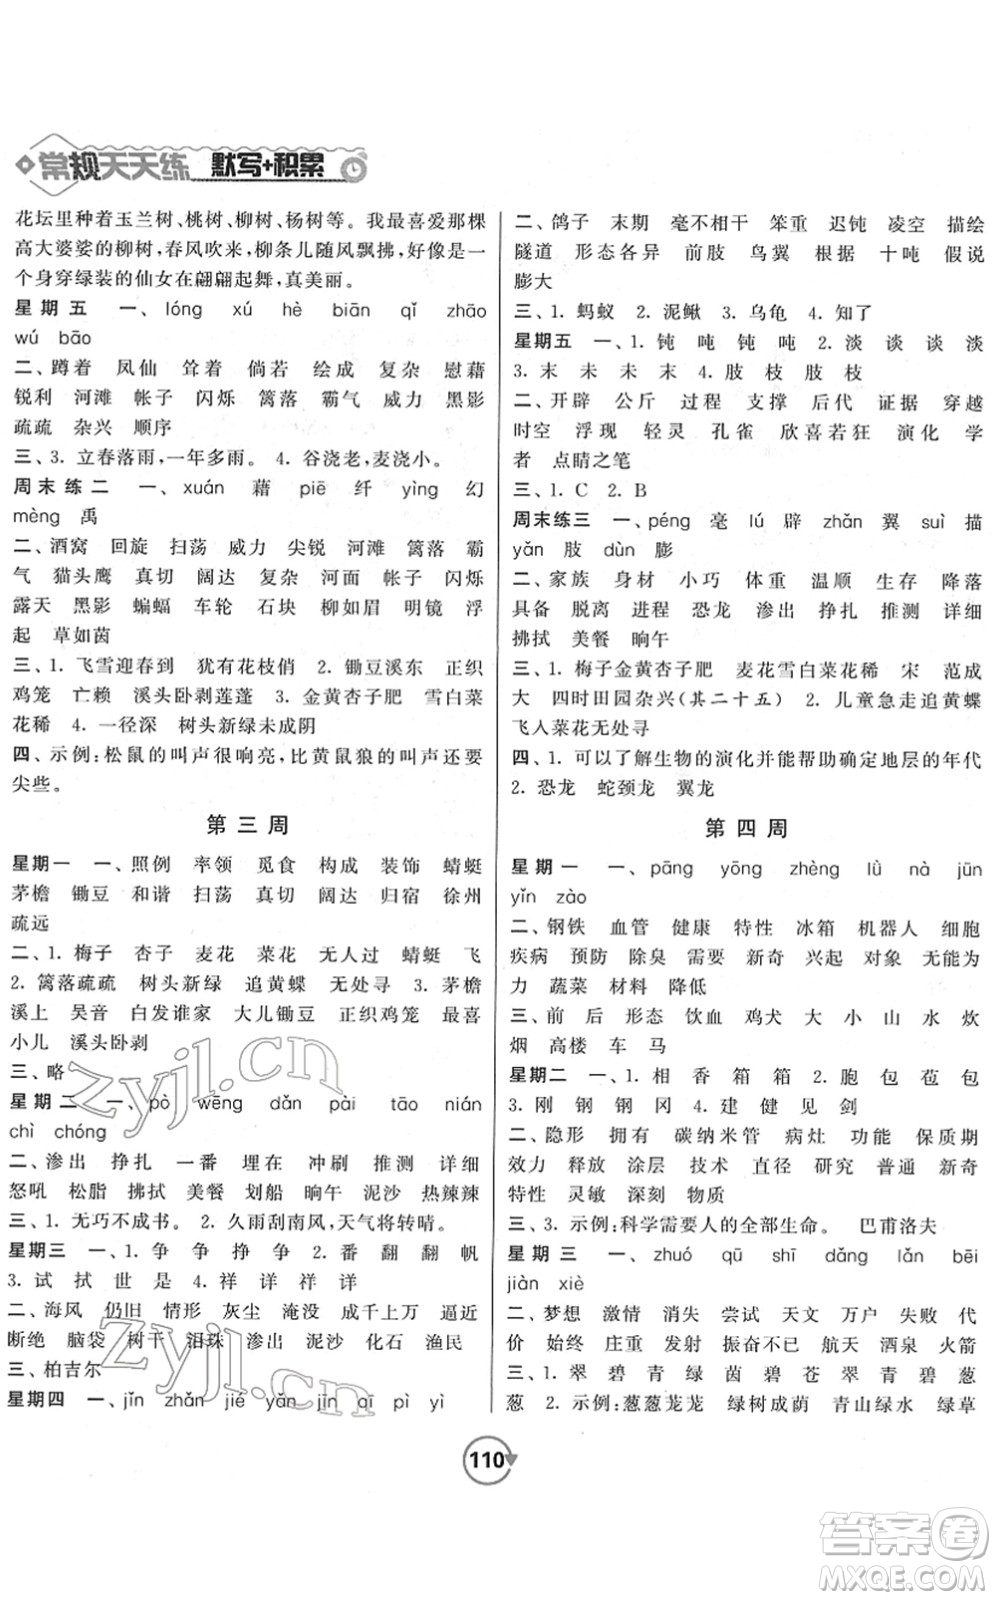 常规天天练 默写+积累
花坛里种着玉兰树、桃树、柳树、杨树等。我最喜爱那棵
高大婆娑的柳树,春风吹来,柳条儿随风飘拂,好像是一
个身穿绿装的仙女在翩翩起舞,真美丽。
星期五 一、lóng xú hè biān qǐ zhāo
wú bāo
二、蹲着 凤仙 耸着 倘若 绘成 复杂 慰藉
锐利 河滩 帐子 闪烁 篱落 霸气 威力 黑影
疏疏 杂兴 顺序
三、3. 立春落雨,一年多雨。 4. 谷浇老,麦浇小。
周末练二 一、xuán 藉 piē 纤 yìng 幻
mèng 禹
二、酒窝 回旋 扫荡 威力 尖锐 河滩 篱落 霸
气 猫头鹰 真切 阔达 复杂 河面 帐子 闪烁
露天 黑影 蝙蝠 车轮 石块 柳如眉 明镜 浮
起 草如茵
三、1. 飞雪迎春到 犹有花枝俏 2. 锄豆溪东 正织
鸡笼 亡赖 溪头卧剥莲蓬 3. 金黄杏子肥 雪白菜
花稀 4. 一径深 树头新绿未成阴
四、示例:松鼠的叫声很响亮,比黄鼠狼的叫声还要
尖些。
第三周
星期一 一、照例 率领 觅食 构成 装饰 蜻蜓
茅檐 锄豆 和谐 扫荡 真切 阔达 归宿 徐州
疏远
二、1. 梅子 杏子 麦花 菜花 无人过 蜻蜓 飞
2. 篱落疏疏 树头新绿 追黄蝶 无处寻 3. 茅檐
溪上 吴音 白发谁家 大儿锄豆 正织鸡笼 最喜
小儿 溪头卧剥
三、略
星期二 一、pò wēng dǎn pài tāo nián
chì chóng
二、渗出 挣扎 一番 埋在 冲刷 推测 详细
怒吼 松脂 拂拭 美餐 划船 晌午 泥沙 热辣辣
三、1. 无巧不成书。 2. 久雨刮南风,天气将转晴。
星期三 一、1. 争 争 挣 争 2. 番 翻 翻 帆
3. 试 拭 世 是 4. 祥 详 祥 详
二、海风 仍旧 情形 灰尘 淹没 成千上万 逼近
断绝 脑袋 树干 泪珠 渗出 泥沙 化石 渔民
三、柏吉尔
星期四 一、jǐn zhǎn jié yǎn jīn qī pì yì
二、鸽子 末期 毫不相干 笨重 迟钝 凌空 描绘
隧道 形态各异 前肢 鸟翼 五吨 十吨 假说
膨大
三、1. 蚂蚁 2. 泥鳅 3. 乌龟 4. 知了
星期五 一、1. 钝 吨 钝 吨 2. 淡 谈 谈 淡
3. 末 未 末 未 4. 肢 枝 肢 枝
二、开辟 公斤 过程 支撑 后代 证据 穿越
时空 浮现 轻灵 孔雀 欣喜若狂 演化 学
者 点睛之笔
三、1. C 2. B
周末练三 一、péng 毫 lú 辟 zhǎn 翼 suì 描
yǎn 肢 dùn 膨
二、家族 身材 小巧 体重 温顺 生存 降落
具备 脱离 进程 恐龙 渗出 挣扎 推测 详细
拂拭 美餐 晌午
三、1. 梅子金黄杏子肥 麦花雪白菜花稀 宋 范成
大 四时田园杂兴(其二十五) 2. 儿童急走追黄蝶
飞入菜花无处寻
四、1. 可以了解生物的演化并能帮助确定地层的年代
2. 恐龙 蛇颈龙 翼龙
第四周
星期一 一、pāng yōng zhèng lǜ nà jūn
yǐn zào
二、钢铁 血管 健康 特性 冰箱 机器人 细胞
疾病 预防 除臭 需要 新奇 兴起 对象 无能为
力 蔬菜 材料 降低
三、前 后 形态 饮血 鸡犬 大 小 山 水 炊
烟 高楼 车 马
星期二 一、1. 相 香 箱 箱 2. 胞 包 苞 包
3. 刚 钢 钢 冈 4. 建 健 见 剑
二、隐形 拥有 碳纳米管 病灶 功能 保质期
效力 释放 涂层 技术 直径 研究 普通 新奇
特性 灵敏 深刻 物质
三、3. 示例:科学需要人的全部生命。 巴甫洛夫
星期三 一、zhuó qū shī dǎng lǎn bēi
jiàn xiè
二、梦想 激情 消失 尝试 天文 万户 失败 代
价 始终 庄重 发射 振奋不已 航天 酒泉 火箭
三、1. 翠 碧 青 绿 茵 碧 苍 翠 青 碧 葱
葱 2. 示例:葱葱茏茏 绿树成荫 青山绿水 绿草
110
zyjl.cn
zyjl.cn
答案卷
MXQE.COM